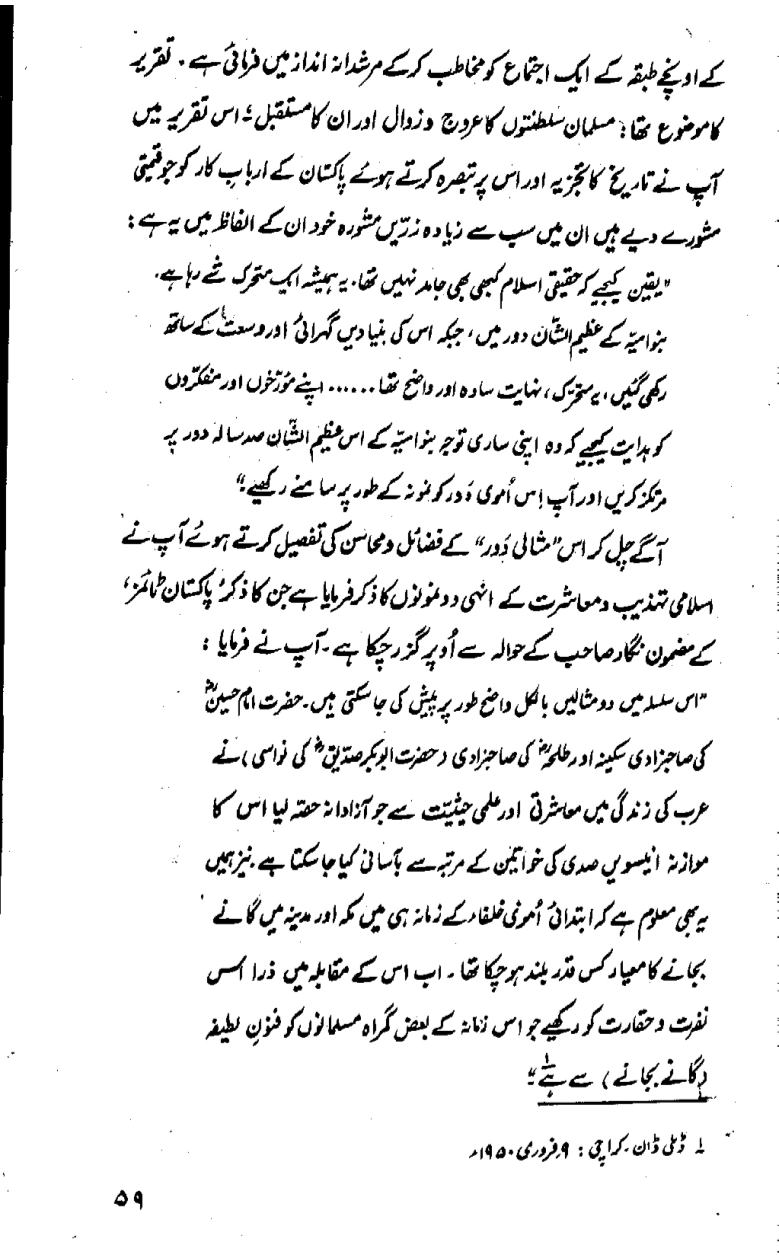 کے اونچے طبقہ کے ایک اجتماع کو مخاطب کرکے مرشدانہ انداز میں فرمائی ہے۔ تقریر
کا موضوع تھا: مسلمان سلطنتوں کا عروج و زوال اور ان کا مستقبل؛ اس تقریر میں
آپ نے تاریخ کا تجزیہ اور اس پر تبصرہ کرتے ہوئے پاکستان کے اربابِ کار کو جو قیمتی
مشورے دیے ہیں ان میں سب سے زیادہ زرّیں مشورہ خود ان کے الفاظ میں یہ ہے:
"یقین کیجیے کہ حقیقی اسلام کبھی بھی جامد نہیں تھا۔ یہ ہمیشہ ایک متحرک شے رہا ہے۔
بنوامیّہ کے عظیم الشّان دور میں، جبکہ اس کی بنیادیں گہرائی اور وسعت کے ساتھ
رکھی گئیں، یہ متحرّک، نہایت سادہ اور واضح تھا ...... اپنے مؤرّخوں اور مفکّروں
کو ہدایت کیجیے کہ وہ اپنی ساری توجہ بنوامیّہ کے اس عظیم الشّان صد سالہ دور پر
مرتکز کریں اور آپ اِس اُموی دَور کو نمونہ کے طور پر سامنے رکھیے۔"
آگے چل کر اس "مثالی دَور" کے فضائل و محاسن کی تفصیل کرتے ہوئے آپ نے
اسلامی تہذیب و معاشرت کے انہی دو نمونوں کا ذکر فرمایا ہے جن کا ذکر 'پاکستان ٹائمز'
کے مضمون نگار صاحب کے حوالہ سے اُوپر گزر چکا ہے۔ آپ نے فرمایا:
"اس سلسلہ میں دو مثالیں بالکل واضح طور پر پیش کی جاسکتی ہیں۔ حضرت امام حسینؓ
کی صاحبزادی سکینہ اور طلحہؓ کی صاحبزادی (حضرت ابوبکر صدّیقؓ کی نواسی) نے
عرب کی زندگی میں معاشرتی اور علمی حیثیّت سے جو آزادانہ حصّہ لیا اس کا
موازنہ انیسویں صدی کی خواتین کے مرتبہ سے بآسانی کیا جاسکتا ہے۔ نیز ہمیں
یہ بھی معلوم ہے کہ ابتدائی اُموی خلفاء کے زمانہ ہی میں مکہ اور مدینہ میں گانے
بجانے کا معیار کس قدر بلند ہوچکا تھا۔ اب اس کے مقابلہ میں ذرا اس
نفرت و حقارت کو رکھیے جو اس زمانہ کے بعض گمراہ مسلمانوں کو فنونِ لطیفہ
(گانے بجانے) سے ہے۱؎"
۱؎ ڈیلی ڈان۔ کراچی: ۹ فروری ۱۹۵۰ء
۵۹